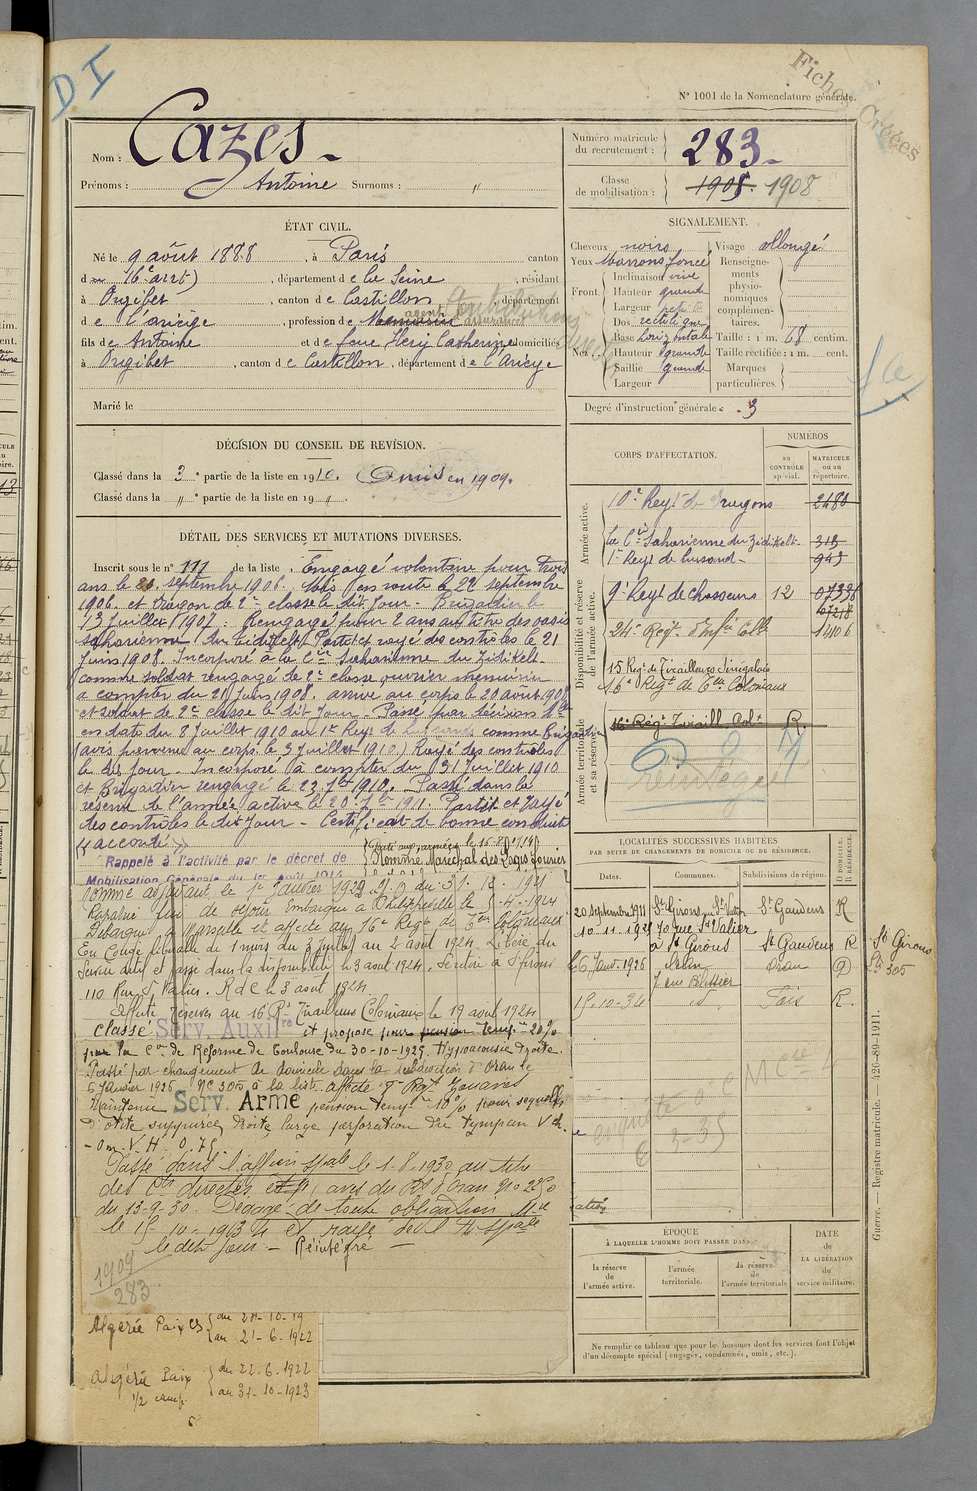 D I
Fiches Créées
N° 1001 de la Nomenclature générale.
Nom : Cazes.
Prénoms : Antoine Surnoms : "
Numéro matricule du recrutement : 283.
Classe de mobilisation : 1905. 1908
ÉTAT CIVIL.
Né le 9 août 1888, à Paris canton
d 16e arrt), département de la Seine, résidant
à Orgibet, canton de Castillon, département
de l'Ariège, profession de Menuisier
fils de Antoine et de feue Catherine domiciliés
à Orgibet, canton de Castillon, département de l'Ariège
Marié le
SIGNALEMENT.
Cheveux noirs Visage allongé
Yeux Marrons foncé
Front. Inclinaison vive
Hauteur grande
Largeur petite
Nez. Dos rectiligne
Base horizontale
Hauteur grande
Saillie grande
Largeur
Renseignements physionomiques complémentaires.
Taille : 1 m. 68 centim.
Taille rectifiée : 1 m. cent.
Marques particulières.
Degré d'instruction générale 3
DÉCISION DU CONSEIL DE REVISION.
Classé dans la 3e partie de la liste en 1910. Omis en 1909.
Classé dans la " e partie de la liste en 19 ".
DÉTAIL DES SERVICES ET MUTATIONS DIVERSES.
Inscrit sous le n° 111 de la liste. Engagé volontaire pour trois
ans le 21 septembre 1906. Mis en route le 22 septembre
1906 et dragon de 2e classe le dit jour. Brigadier le
13 juillet 1907. Rengagé pour 2 ans au titre des oasis
sahariennes du Tidikelt. Parti et rayé des contrôles le 21
juin 1908. Incorporé à la Cie Saharienne du Tidikelt
comme soldat rengagé de 2e classe ouvrier menuisier
à compter du 21 juin 1908. arrivé au corps le 20 août 1908
et soldat de 2e classe le dit jour. Passé par décision Mlle
en date du 8 juillet 1910 au 1er Regt de hussards comme Brigadier
(avis parvenu au corps le 3 juillet 1910) Rayé des contrôles
le dit jour. Incorporé à compter du 31 juillet 1910
et Brigadier rengagé le 23 7bre 1910. Passé dans la
réserve de l'armée active le 20 7bre 1911. Partit et rayé
des contrôles le dit jour. Certificat de bonne conduite
accordé.
Rappelé à l'activité par le décret de
Mobilisation Générale du 1er août 1914
Nommé Maréchal des Logis fourrier
Nommé adjudant le 1er Janvier 1922 du 31. 12. 1921
Rapatrié fin de séjour Embarqué à Philippeville le 5-4-1924
Débarqué à Marseille et affecté au 16e Regt de Tirs Coloniaux
En Congé libérable de 1 mois du 3 juillet au 2 aout 1924. Libéré du
Service actif et passé dans la disponibilité le 3 aout 1924. Se retire à St Girons
110 Rue St Valier. R d C le 3 août 1924
Affecté Réserves au 16 Rt Tirailleurs Coloniaux le 19 aout 1924
classé Serv. Auxilre et proposé pour pension temp. 20%
par la Con de Réforme de Toulouse du 30-10-1925. Hypoacousie droite.
Passé par changement de domicile dans la subdivision d'Oran le
6 Janvier 1926 N° 305 à la liste. affecté 2e Regt Zouaves
Maintenu Serv. Armé pension temp. 10% pour sequelles
d'otite suppurée droite, large perforation du tympan V ch.
- 0m. V. H. 0,75.
Passé dans l'affon spale le 1-8-1930 au titre
des Cons directes avis du Bt d'Oran N° 2250
du 13-9-30. Dégagé de toute obligation Mre
le 15 10-1963 et rayé de l'Af spale
le dit jour. - Réintégré -
1909
283
Algérie Paix CS { du 24-10-19
au 21-6-1922
Algérie Paix { du 22-6-1922
1/2 camp. au 31-10-1923
CORPS D'AFFECTATION.
NUMÉROS
au CONTRÔLE spécial.
MATRICULE ou au répertoire.
Armée active.
10e Regt de dragons 2480
la Cie Saharienne du Tidikelt 313
1er Regt de hussards 943
Disponibilité et réserve de l'armée active.
9e Regt de chasseurs 12 07336
07218
24e Regt d'Infie Colle 1406
15 Regt de Tirailleurs Sénégalais
16e Regt de Tirs Coloniaux
Armée territoriale et sa réserve.
16e Regt Tiraill Col. R.
LOCALITÉS SUCCESSIVES HABITÉES
PAR SUITE DE CHANGEMENTS DE DOMICILE OU DE RÉSIDENCE.
Dates. Communes. Subdivisions de région. D DOMICILE. R RÉSIDENCE.
20 Septembre 1911 St Girons St Gaudens R
10-11-1925 70 rue St Valier
à St Girons St Gaudens R
le 6 Janv. 1926 Oran D
rue Pélissier
15-10-34 d° R.
St Girons
305
enquête
6-3-35
ÉPOQUE
À LAQUELLE L'HOMME DOIT PASSER DANS
la réserve de l'armée active.
l'armée territoriale.
la réserve de l'armée territoriale
DATE
de
LA LIBÉRATION
du
service militaire.
Ne remplir ce tableau que pour les hommes dont les services font l'objet
d'un décompte spécial (engagés, condamnés, omis, etc.).
Guerre. — Registre matricule. — 426-89-1911.